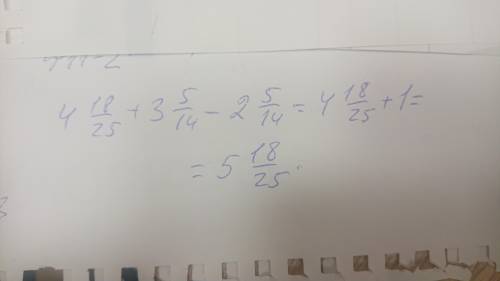 4 18/25 + 3 5/14 - 2 5/14 = 4 18/25 + 1 =
= 5 18/25.